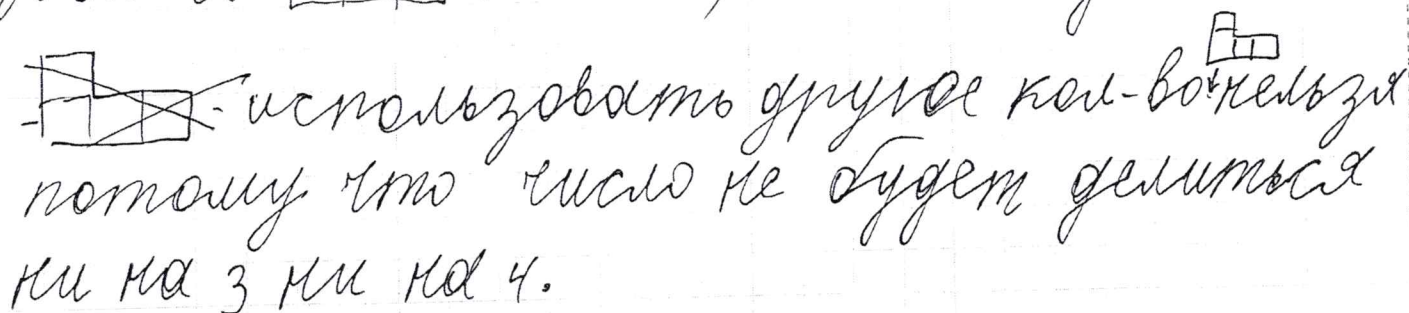 - использовать другое кол-во нельзя
потому что число не будет делиться
ни на 3 ни на 4.